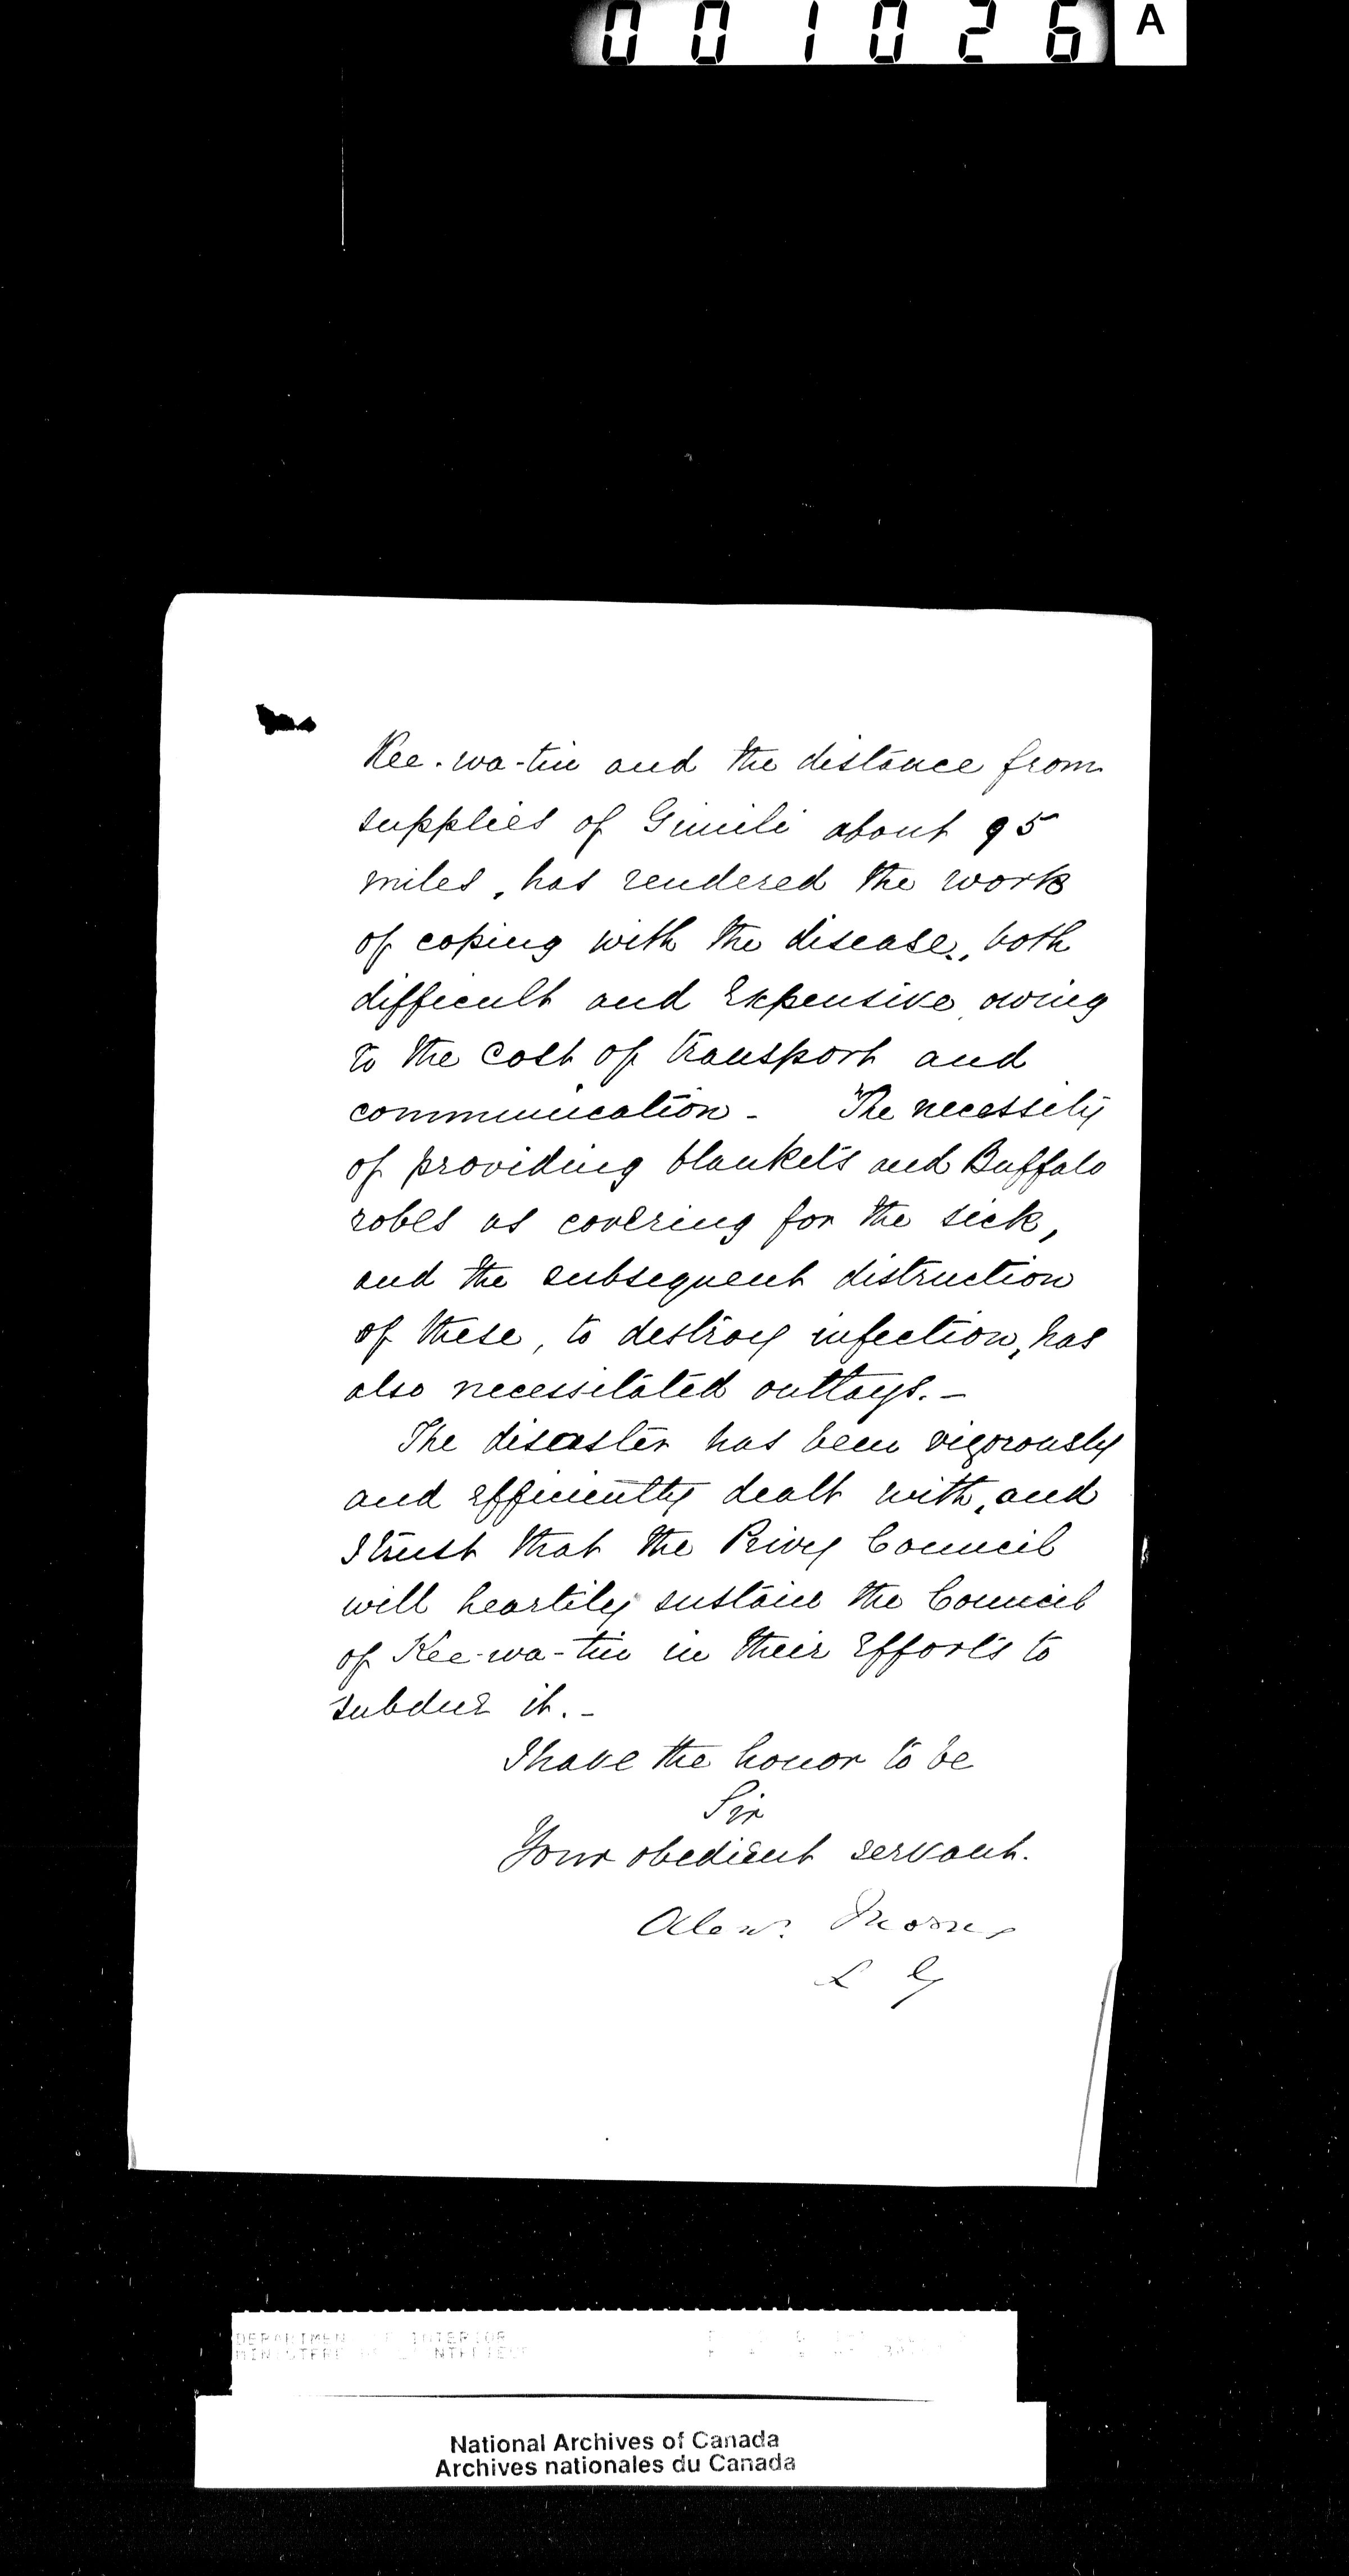 001026 A
Kee-wa-tin and the distance from
supplies of Gimili about 95
miles, has rendered the work
of coping with the disease, both
difficult and expensive, owing
to the cost of transport and
communication - The necessity
of providing blankets and Buffalo
robes as covering for the sick,
and the subsequent distruction
of these, to destroy infection, has
also necessitated outlays. -
The disaster has been vigorously
and efficiently dealt with, and
I trust that the Privy Council
will heartily sustain the Council
of Kee-wa-tin in their efforts to
subdue it. -
I have the honor to be
Sir
Your obedient servant.
Alexr. Morris
L G
INTERIOR
National Archives of Canada
Archives nationales du Canada